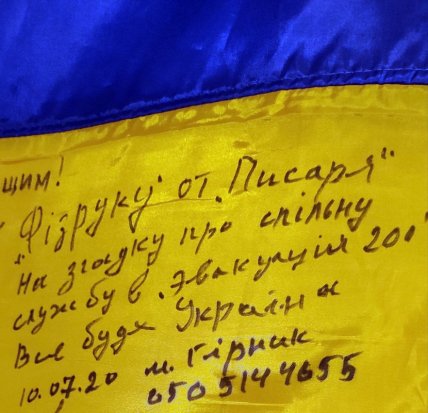 щим!
"Фізруку" от "Писаря"
На згадку про спільну
службу в "Эвакуація 200"
Все буде Україна
10.07.20 м. Гірник
0505144655